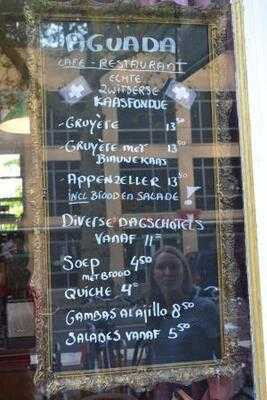 AGUADA
CAFE - RESTAURANT
ECHTE
ZWITSERSE
KAASFONDUE
- GRUYÈRE 13 50
- GRUYÈRE MET 13 50
BLAUWE KAAS
- APPENZELLER 13 50
INCL BROOD EN SALADE !
DIVERSE DAGSCHOTELS
VANAF 11=
SOEP 4 50
MET BROOD
QUICHE 4 =
GAMBAS AL AJILLO 8 50
SALADES VANAF 5 50